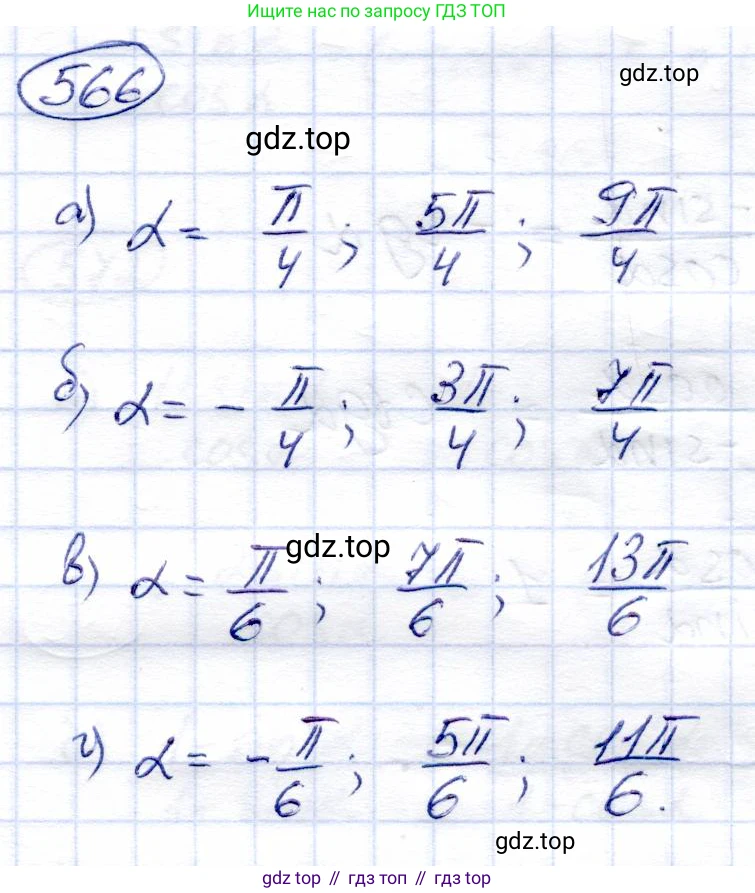 Ищите нас по запросу ГДЗ ТОП
566
gdz.top
gdz.top
а) α = π/4 ; 5π/4 ; 9π/4
б) α = - π/4 ; 3π/4 ; 7π/4
gdz.top
в) α = π/6 ; 7π/6 ; 13π/6
г) α = - π/6 ; 5π/6 ; 11π/6.
gdz.top
gdz top // гдз топ // гдз top